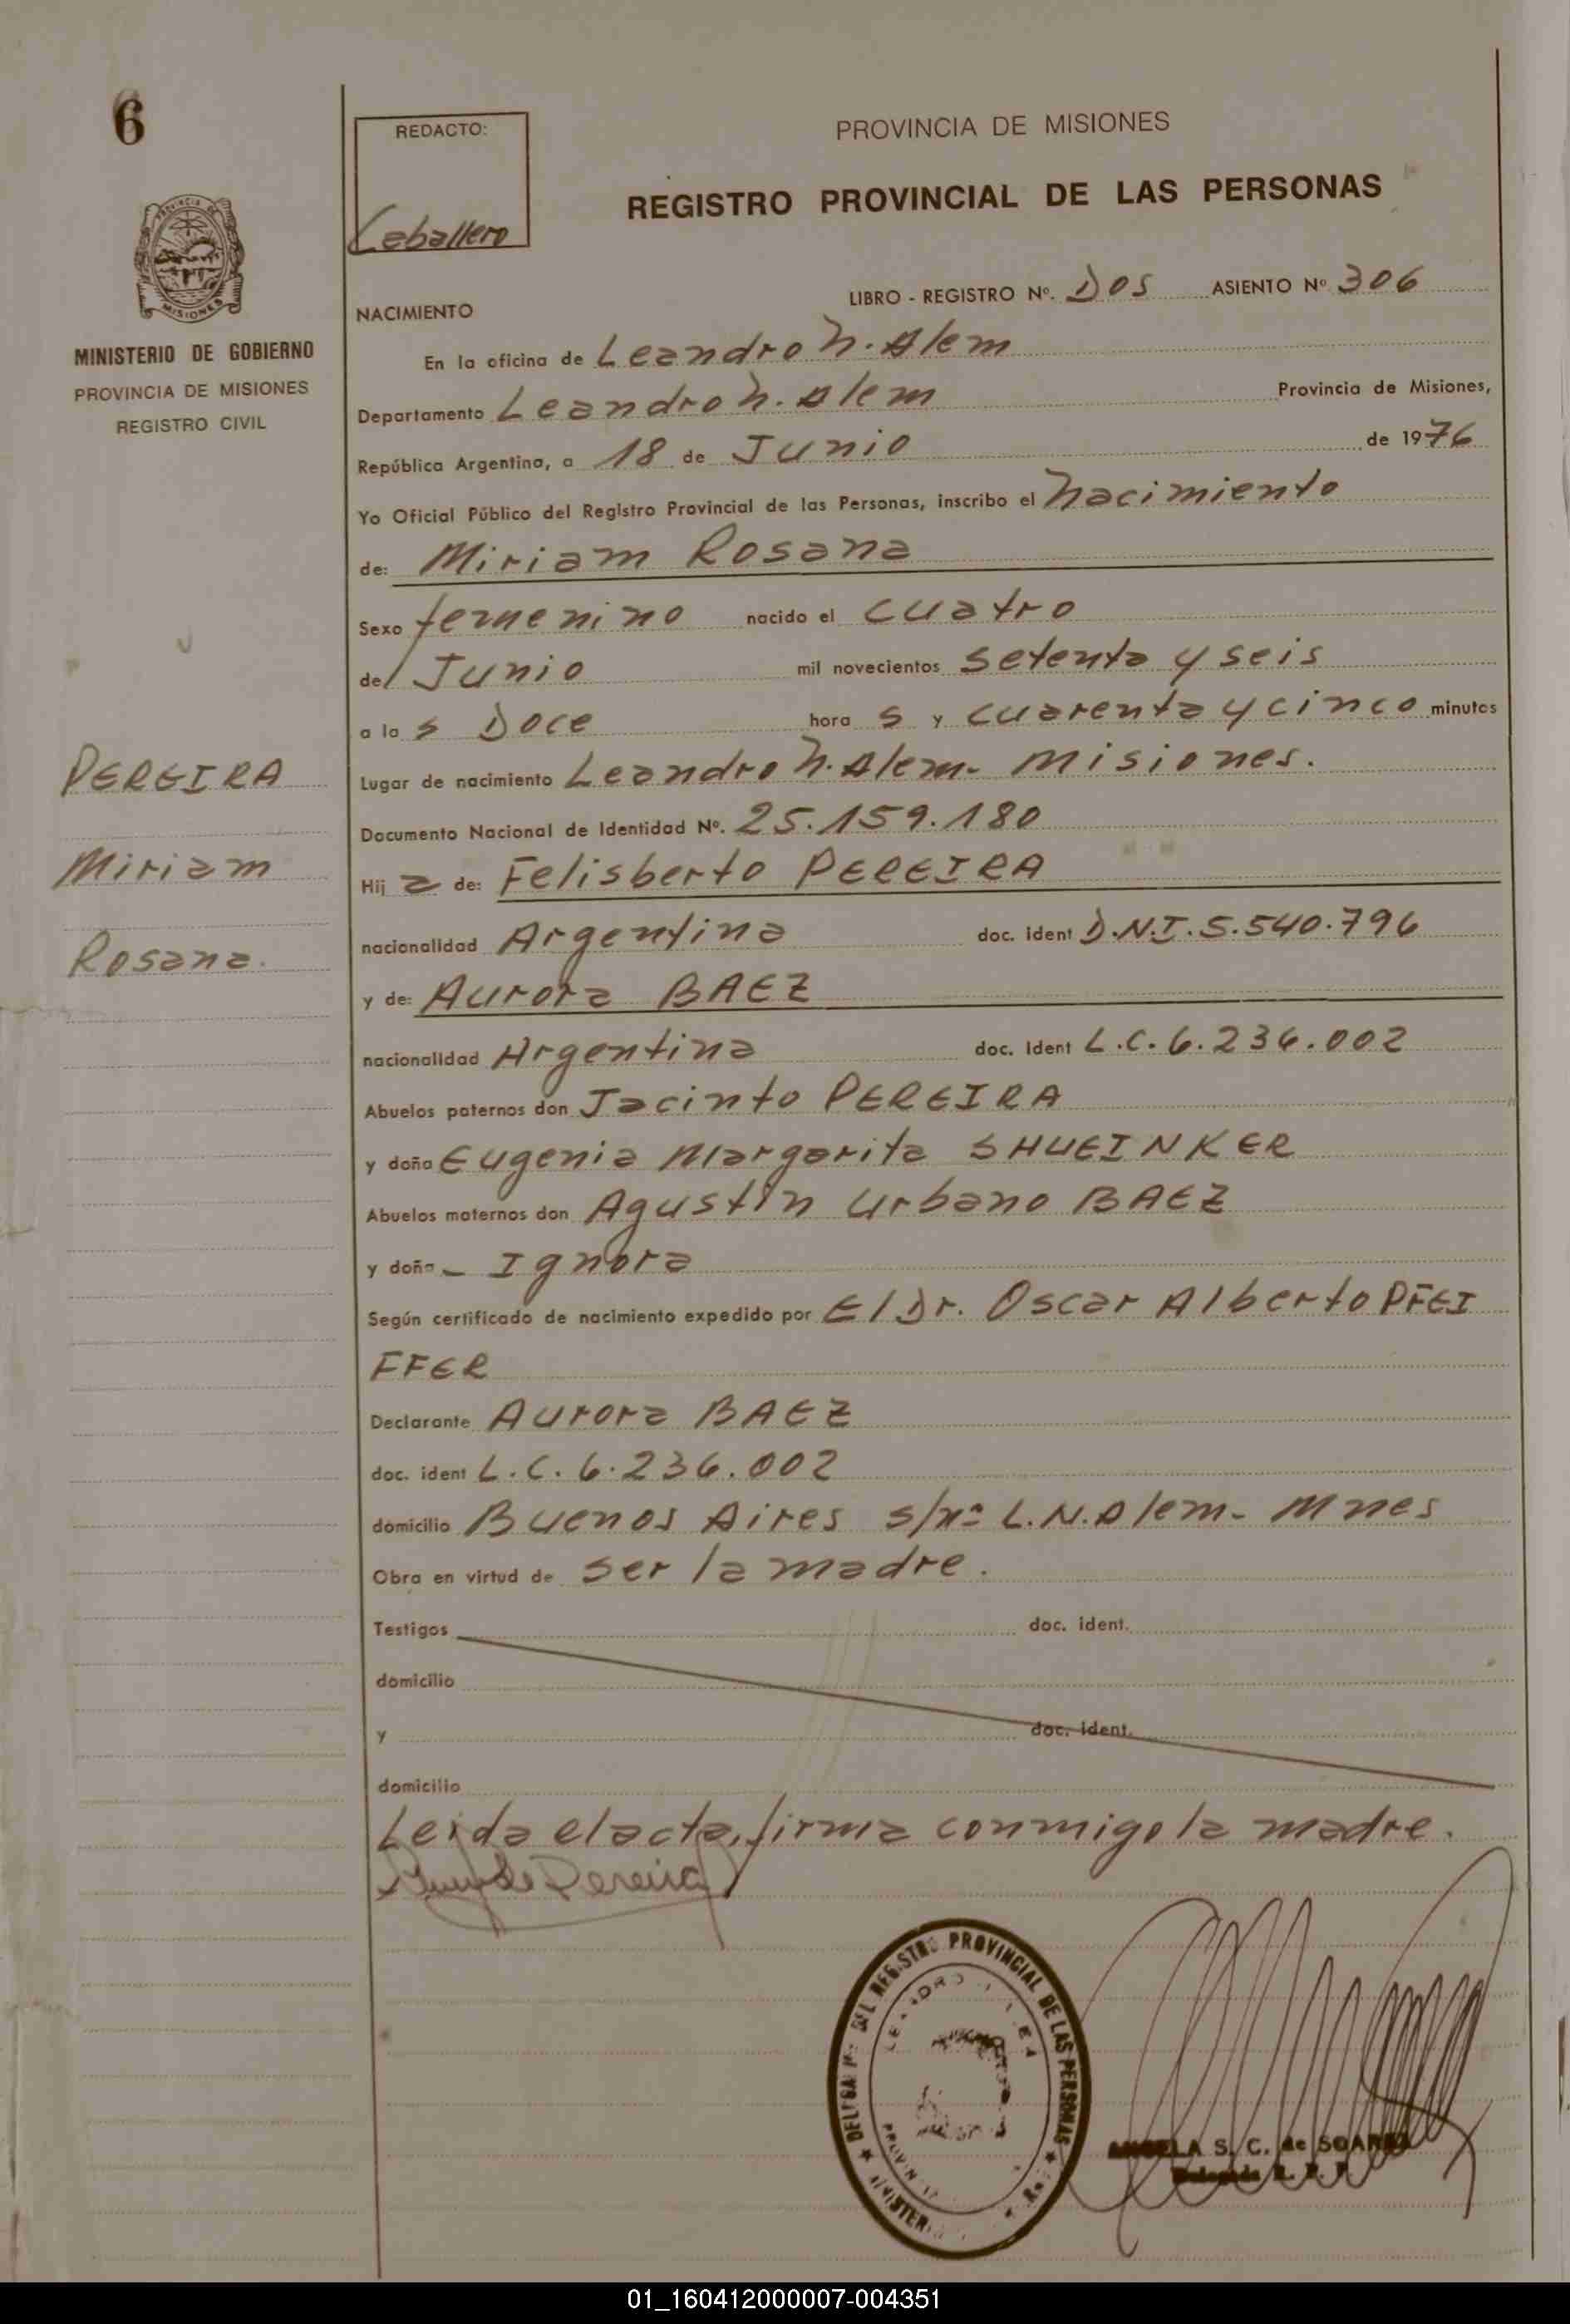 6
REDACTO:
Caballero
PROVINCIA DE MISIONES
REGISTRO PROVINCIAL DE LAS PERSONAS
MINISTERIO DE GOBIERNO
PROVINCIA DE MISIONES
REGISTRO CIVIL
NACIMIENTO
LIBRO - REGISTRO Nº. Dos ASIENTO Nº 306
En la oficina de Leandro N. Alem
Departamento Leandro N. Alem Provincia de Misiones,
República Argentina, a 18 de Junio de 1976
Yo Oficial Público del Registro Provincial de las Personas, inscribo el Nacimiento
de: Miriam Rosana
Sexo femenino nacido el cuatro
de Junio mil novecientos setenta y seis
a la s Doce hora s y cuarenta y cinco minutos
PEREIRA
Miriam
Rosana.
Lugar de nacimiento Leandro N. Alem- Misiones.
Documento Nacional de Identidad Nº. 25.159.180
Hij a de: Felisberto PEREIRA
nacionalidad Argentina doc. ident D.N.I. 5.540.796
y de: Aurora BAEZ
nacionalidad Argentina doc. Ident L.C. 6.236.002
Abuelos paternos don Jacinto PEREIRA
y doña Eugenia Margarita SHUEINKER
Abuelos maternos don Agustin Urbano BAEZ
y doña - Ignora
Según certificado de nacimiento expedido por El Dr. Oscar Alberto PFEI
FFER
Declarante Aurora BAEZ
doc. ident L.C. 6.236.002
domicilio Buenos Aires s/nº L.N.Alem- Mnes
Obra en virtud de ser la madre.
Testigos doc. ident.
domicilio
y doc. ident.
domicilio
Leida el acta, firma conmigo la madre.
de Pereira
DEL REGISTRO PROVINCIAL DE LAS PERSONAS
ANGELA S. C. de SOAREZ
01_160412000007-004351